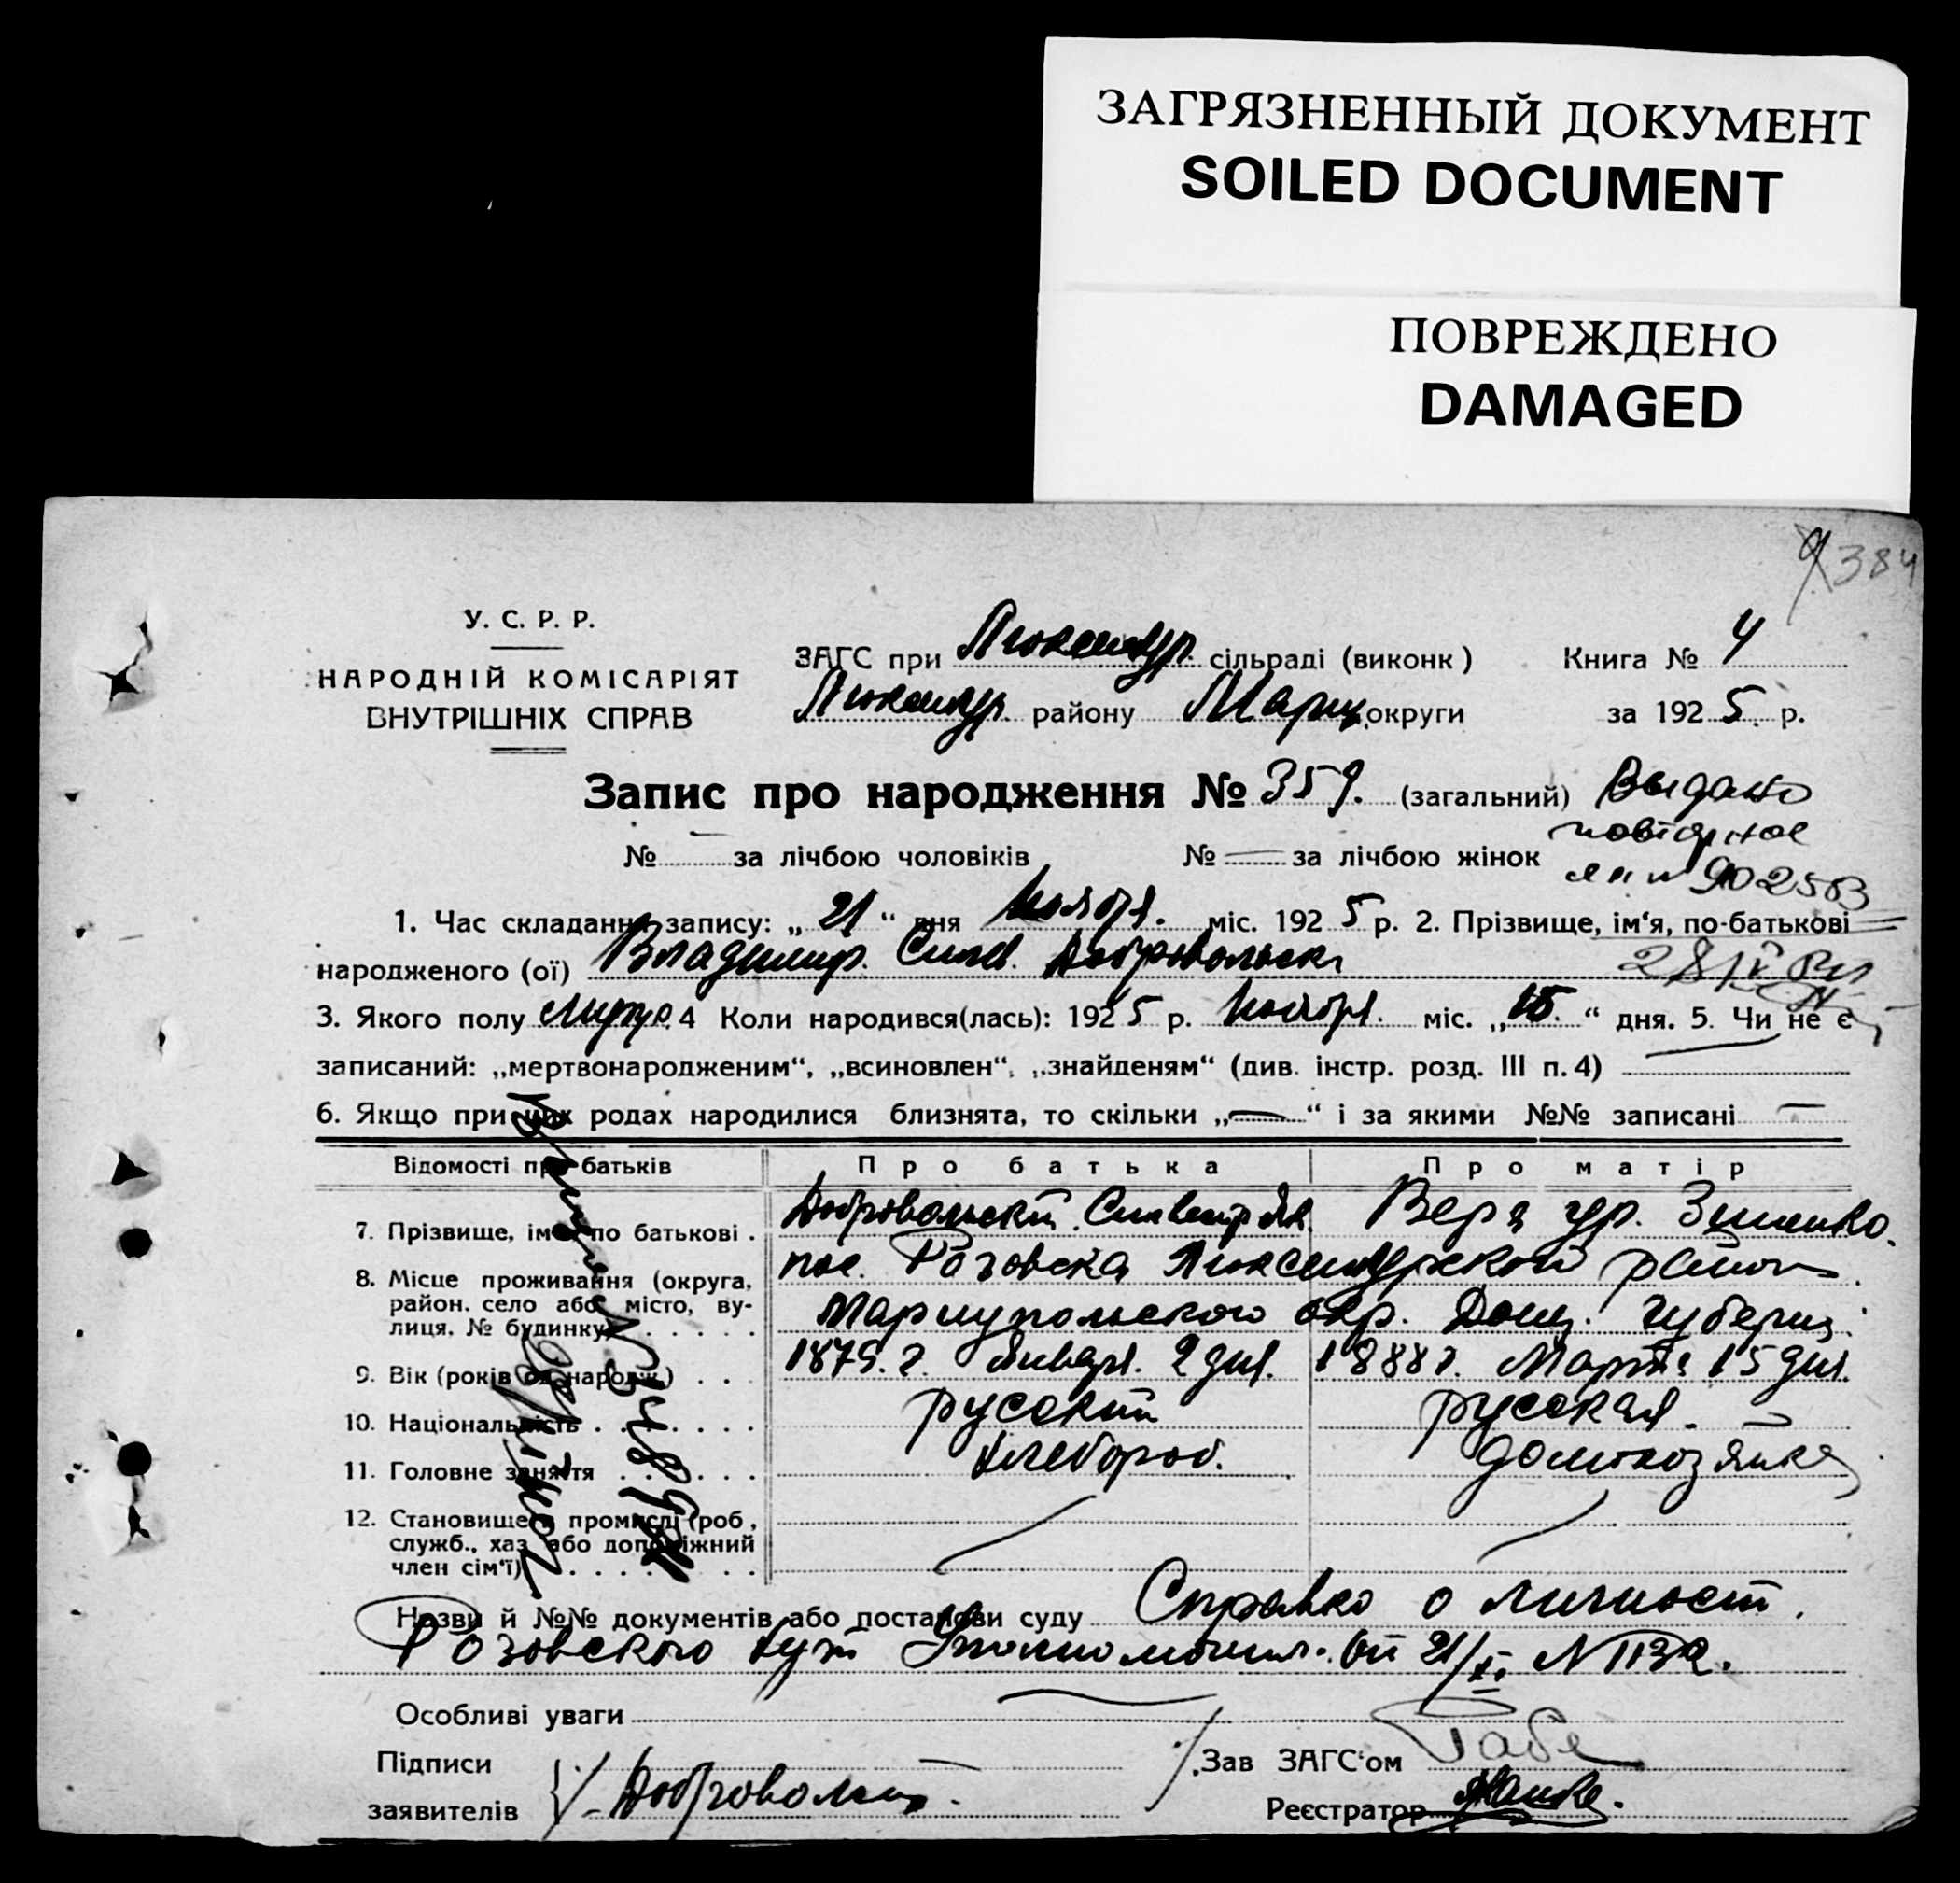 ЗАГРЯЗНЕННЫЙ ДОКУМЕНТ
SOILED DOCUMENT
ПОВРЕЖДЕНО
DAMAGED
384
У. С. Р. Р.
НАРОДНІЙ КОМІСАРІЯТ
ВНУТРІШНІХ СПРАВ
ЗАГС при Люксембур. сільраді (виконк) Книга № 4
Люксембур. району Мариуп. округи за 1925 р.
Запис про народження № 359. (загальний) Выдано
повторное
№ — за лічбою чоловіків № — за лічбою жінок
1. Час складання запису: „21“ дня Ноября. міс. 1925 р. 2. Прізвище, ім‘я, по-батькові
народженого (ої) Владимир. Силв. Добровольски
3. Якого полу 4 Коли народився(лась): 1925 р. Ноября. міс. „15.“ дня. 5. Чи не є
записаний: „мертвонародженим“, „всиновлен“, „знайденям“ (див. інстр. розд. III п. 4)
6. Якщо при цих родах народилися близнята, то скільки „—“ і за якими №№ записані —
Відомості про батьків Про батька Про матір
7. Прізвище, ім‘я по батькові . Добровольский Силвестр Як. Вера ур. Зиненко.
8. Місце проживання (округа, район. село або місто, вулиця, № будинку) пос. Розовка Люксембургской район
Мариупольского окр. Донец. Губерни.
9. Вік (років од народж.) . . . 1879. г. Января. 2 дня. 1888 г. Марта 15 дня.
10. Національність русский русская.
11. Головне заняття хлебороб. домохозяйка
12. Становище в промислі (роб, служб., хаз або допоміжний член сім‘ї)
Назви й №№ документів або постанови суду Справка о личност.
Розовского Уполномочен. от 21/XI. N 1132.
Особливі уваги
Підписи
заявителів Добровольский.
Зав ЗАГС‘ом
Реєстратор